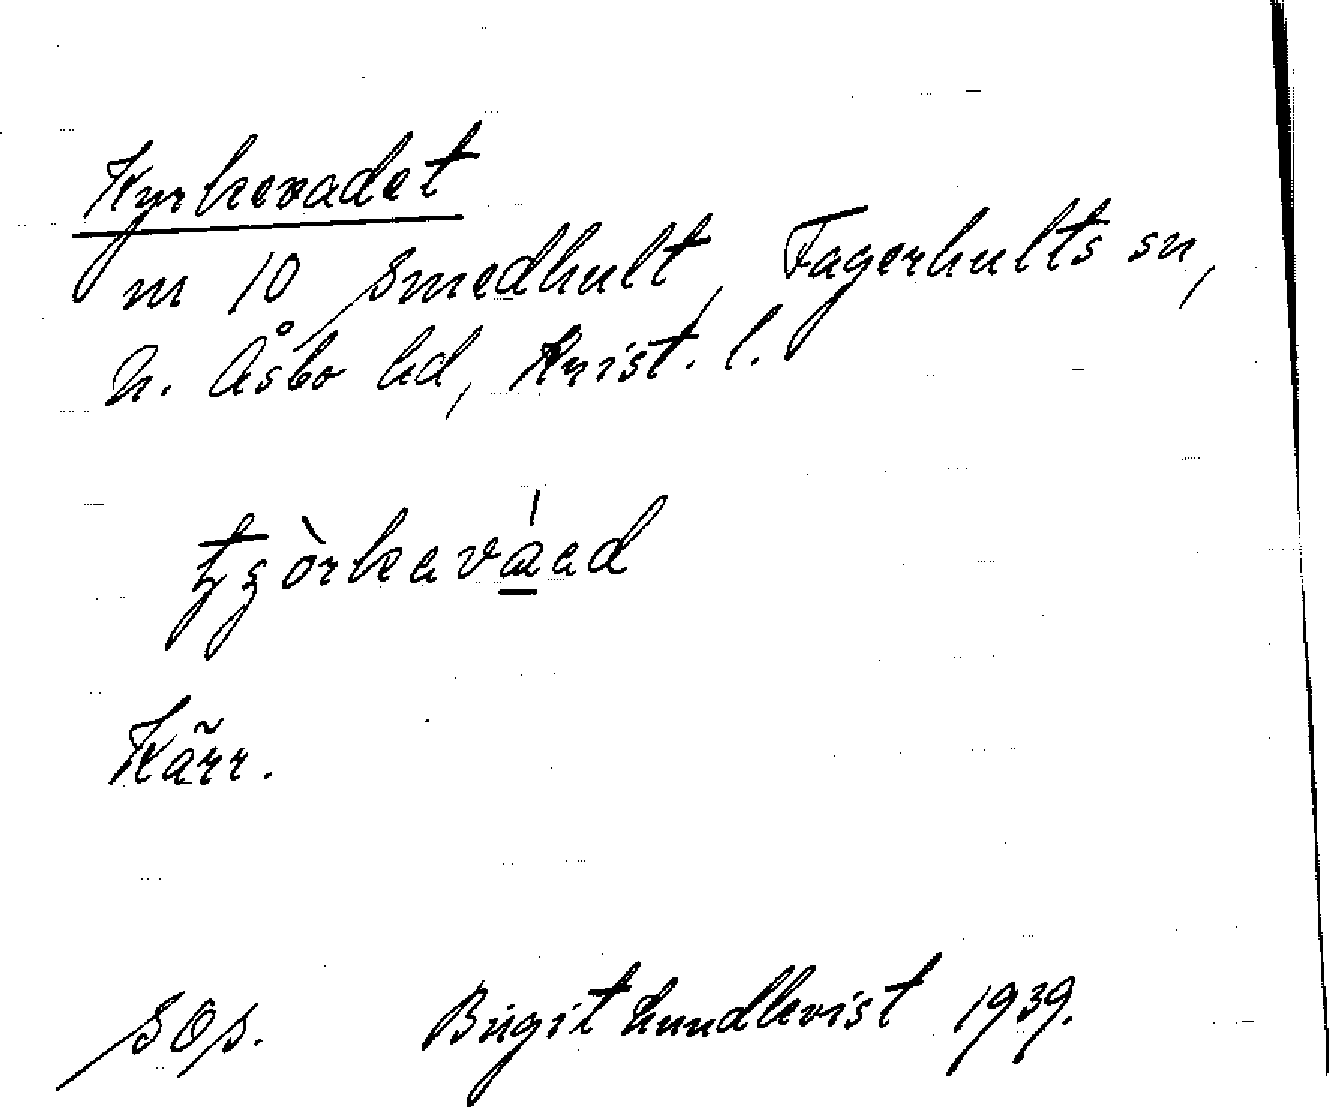 Kyrkevadet
m 10 Smedhult, Fagerhults sn,
N. Åsbo hd, Krist. l.
Kärr.
SOp. Birgit Lundkvist 1939.